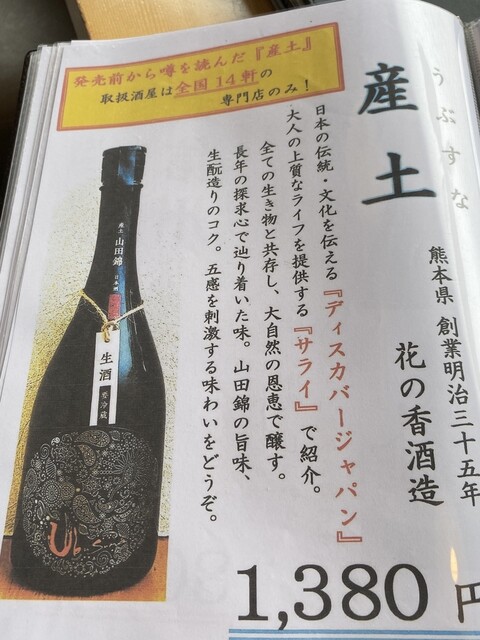 発売前から噂を読んだ『産土』
取扱酒屋は全国14軒の
専門店のみ!
産土
うぶすな
熊本県 創業明治三十五年
花の香酒造
日本の伝統・文化を伝える『ディスカバージャパン』
大人の上質なライフを提供する『サライ』で紹介。
全ての生き物と共存し、大自然の恩恵で醸す。
長年の探求心で辿り着いた味。山田錦の旨味、
生酛造りのコク。五感を刺激する味わいをどうぞ。
1,380円
産土 山田錦 日本酒
生酒 要冷蔵